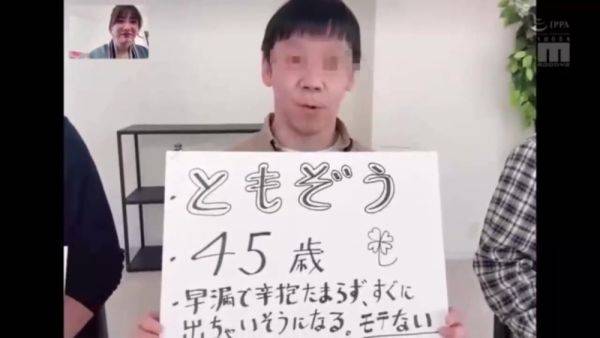 IPPA
m
・ともぞう
・45歳
・早漏で辛抱たまらず、すぐに
出ちゃいそうになる。モテない